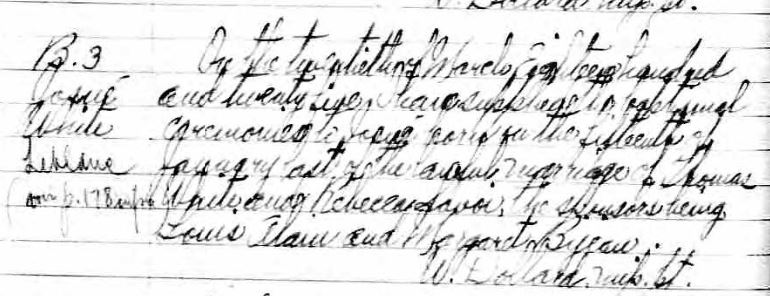 W. Dollard, mip. st.
B. 3
Josué
White
Leblanc
On the twentieth of March, Eighteen hundred
and twenty I have supplied the baptismal
ceremonies to Josué born on the fifteenth of
January last, of the marriage of Thomas
White and Rebecca Savoie, the sponsors being
Louis and Margaret
W. Dollard, mip. st.